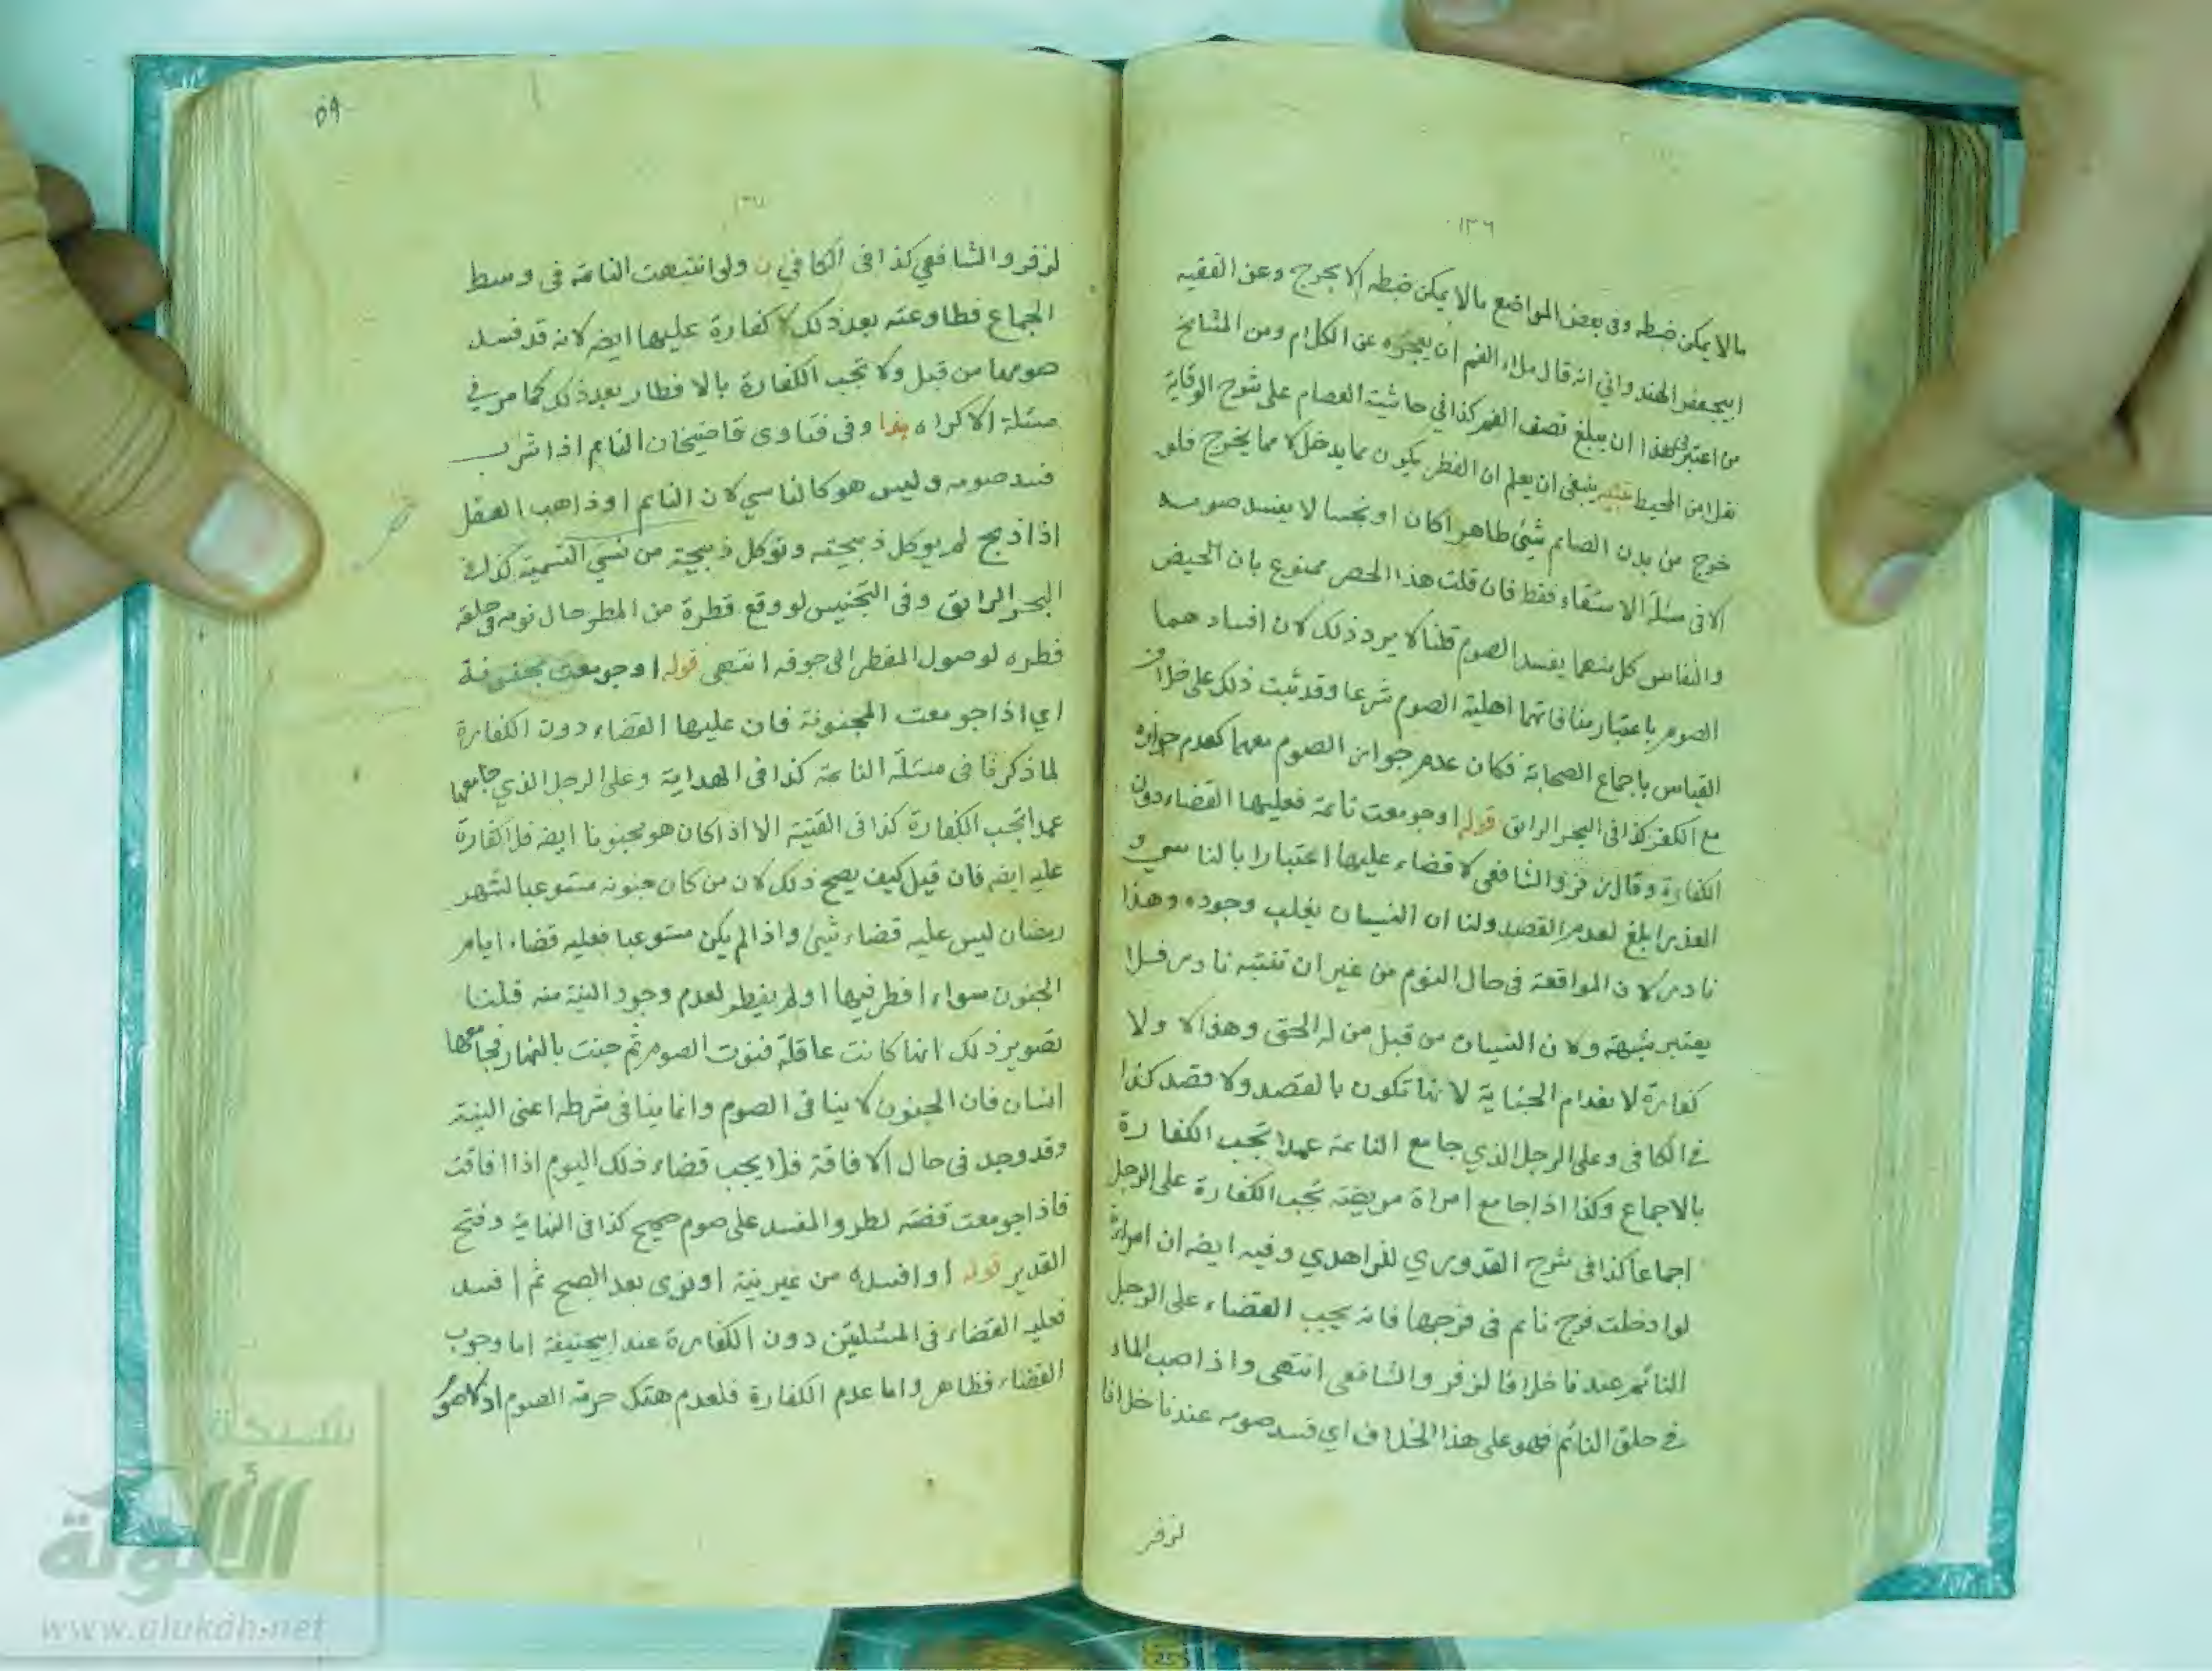 ١٣٦
مالا يمكن ضبطه وفى بعض المواضع مالا يمكن ضبطه الا بحرج وعن الفقيه
ابيجعفر الهندوانى انه قال ملاء الفم ان يعجزه عن الكلام ومن المشايخ
من اعتبر فى هذا ان يبلغ نصف الفم كذا في حاشية العصام على شرح الوقاية
نقلا من المحيط تنبيه ينبغى ان يعلم ان الفطر يكون مما يدخل لا مما يخرج فلو
خرج من بدن الصائم شئ طاهرا كان او نجسا لا يفسد صومه
الا فى مسئلة الاستقاء فقط فان قلت هذا الحصر ممنوع بان الحيض
والنفاس كل منهما يفسد الصوم قلنا لا يرد ذلك لان افسادهما
الصوم باعتبار منافاتهما اهلية الصوم شرعا وقد ثبت ذلك على خلاف
القياس باجماع الصحابة فكان عدم جواز الصوم معهما كعدم جوازه
مع الكفر كذا فى البحر الرائق قوله او جومعت نائمة فعليها القضاء دون
الكفارة وقال زفر والشافعى لا قضاء عليها اعتبارا بالناسي و
العذر ابلغ لعدم القصد ولنا ان النسيان يغلب وجوده وهذا
نادر لان المواقعة فى حال النوم من غير ان تنتبه نادر فلا
يعتبر شبهة ولان النسيان من قبل من له الحق وهذا لا ولا
كفارة لانعدام الجناية لانها تكون بالقصد ولا قصد كذا
فى الكافى وعلى الرجل الذي جامع النائمة عمدا تجب الكفارة
بالاجماع وكذا اذا جامع امراة مريضة تجب الكفارة على الرجل
اجماعا كذا فى شرح القدوري للزاهدي وفيه ايضه ان امراة
لو ادخلت فرج نائم فى فرجها فانه يجب القضاء على الرجل
النائم عندنا خلافا لزفر والشافعى انتهى واذا صب الماء
فى حلق النائم فهو على هذا الخلاف اي فسد صومه عندنا خلافا
لزفر
٥٩
١٣٧
لزفر والشافعي كذا فى الكافي ولو انتبهت النائمة فى وسط
الجماع فطاوعته بعد ذلك لا كفارة عليها ايضه لانه قد فسد
صومها من قبل ولا تجب الكفارة بالافطار بعد ذلك كما مر في
مسئلة الاكراه وفى فتاوى قاضيخان النائم اذا شرب
فسد صومه وليس هو كالناسي لان النائم او ذاهب العقل
اذا ذبح لم يوكل ذبيحته وتوكل ذبيحة من نسي التسمية كذا فى
البحر الرائق وفى التجنيس لو وقع قطرة من المطر حال نومه فى حلقه
فطره لوصول المفطر الى جوفه انتهى قوله او جومعت مجنونة
اي اذا جومعت المجنونة فان عليها القضاء دون الكفارة
لما ذكرنا فى مسئلة النائمة كذا فى الهداية وعلى الرجل الذي جامعها
عمدا تجب الكفارة كذا فى القنية الا اذا كان هو مجنونا ايضه فلا كفارة
عليه ايضه فان قيل كيف يصح ذلك لان من كان جنونه مستوعبا لشهر
رمضان ليس عليه قضاء شئ واذا لم يكن مستوعبا فعليه قضاء ايام
الجنون سواء افطر فيها او لم يفطر لعدم وجود النية منه قلنا
تصوير ذلك انها كانت عاقلة فنوت الصوم ثم جنت بالنهار فجامعها
انسان فان الجنون لا ينافى الصوم وانما ينافى شرطه اعنى النية
وقد وجد فى حال الافاقة فلا يجب قضاء ذلك اليوم اذا افاقت
فاذا جومعت قضته لطرو المفسد على صوم صحيح كذا فى النهاية وفتح
القدير قوله او افسده من غير نية او نوى بعد الصبح ثم افسد
فعليه القضاء فى المسئلتين دون الكفارة عند ابيحنيفة اما وجوب
القضاء فظاهر واما عدم الكفارة فلعدم هتك حرمة الصوم اذ لا صوم
شبكة
الألوكة
www.alukah.net